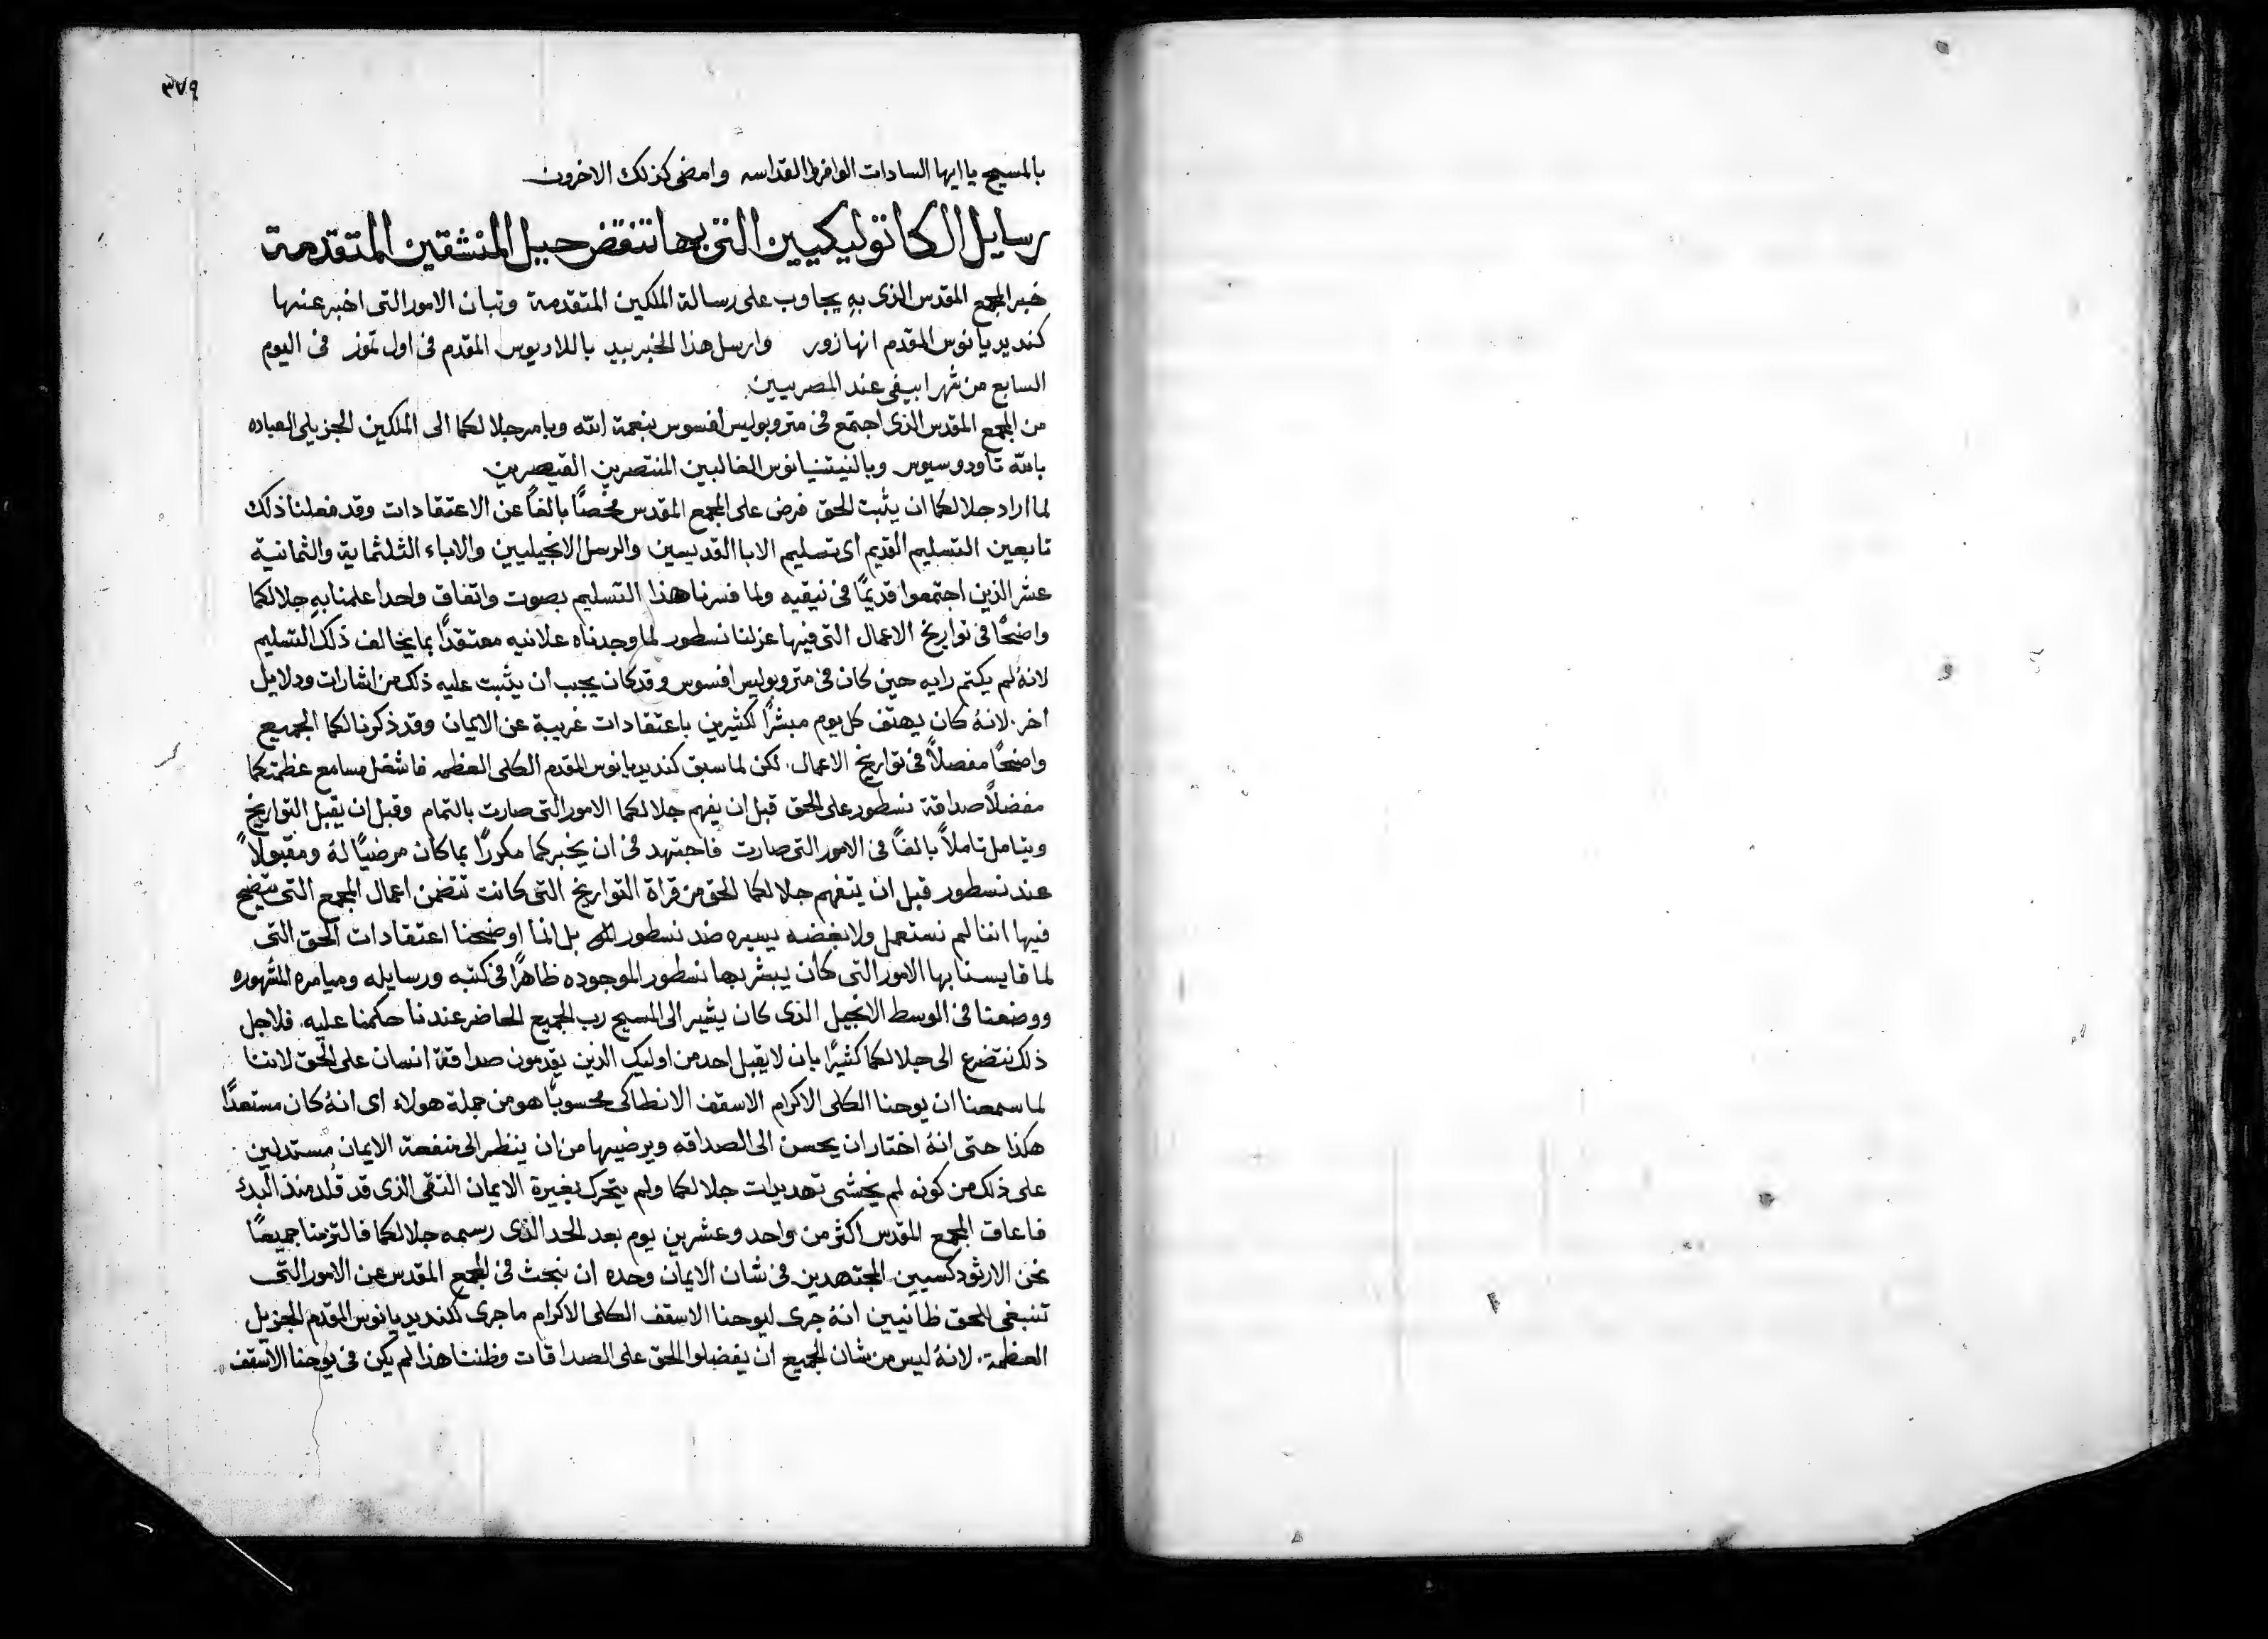 ٣٧٩
بالمسيح يا ايها السادات الوافر القداسه وامضى كذلك الاخرون
رسايل الكاتوليكيين التي بها تنقض حيل المنشقين المتقدمة
خبر المجمع المقدس الذى بهِ يجاوب على رسالة الملكين المتقدمة وتبان الامور التى اخبر عنها
كنديديانوس المقدم انها زور وارسل هذا الخبر بيد باللاديوس المقدم فى اول تموز فى اليوم
السابع من شهر ابيفى عند المصريين
من المجمع المقدس الذى اجتمع فى متروبوليس افسوس بنعمة الله وبامر جلالكما الى الملكين الجزيلى العباده
بالله تاودوسيوس وبالنيتنيانوس الغالبين المنتصرين القيصرين
لما اراد جلالكما ان يثبت الحق فرض على المجمع المقدس فحصًا بالغًا عن الاعتقادات وقد فعلنا ذلك
تابعين التسليم القديم اى تسليم الابا القديسين والرسل الانجيليين والاباء الثلثماية والثمانية
عشر الذين اجتمعوا قديمًا فى نيقيه ولما فسرنا هذا التسليم بصوت واتفاق واحد اعلمنا بهِ جلالكما
واضحًا فى تواريخ الاعمال التى فيها عزلنا نسطور لما وجدناه علانيه معتقدًا بما يخالف ذلك التسليم
لانهُ لم يكتم رايه حين كان فى متروبوليس افسوس وقد كان يجب ان يثبت عليه ذلك من اشارات ودلايل
اخر. لانهُ كان يهتف كل يوم مبشرًا لكثيرين باعتقادات غريبة عن الايمان وقد ذكرنا لكما الجميع
واضحًا مفصلاً فى تواريخ الاعمال. لكن لما سبق كنديديانوس المقدم الكلى العظمه فاشغل مسامع عظمتكما
مفضلاً صداقة نسطور على الحق قبل ان يفهم جلالكما الامور التى صارت بالتمام وقبل ان يقبل التواريخ
ويتامل تاملاً بالغًا فى الامور التى صارت فاجتهد فى ان يخبركما مكررًا بما كان مرضيًا لهُ ومقبولاً
عند نسطور قبل ان يتفهم جلالكما الحق من قراة التواريخ التى كانت تتضمن اعمال المجمع التى يتضح
فيها اننا لم نستعمل ولا بغضه يسيره ضد نسطور بل انما اوضحنا اعتقادات الحق التى
لما قايسنا بها الامور التى كان يبشر بها نسطور الموجوده ظاهرًا فى كتبه ورسايله وميامره المشهوره
ووضعنا فى الوسط الانجيل الذى كان يشير الى المسيح رب الجميع الحاضر عندنا حكمنا عليه. فلاجل
ذلك نتضرع الى جلالكما كثيرًا بان لا يقبل احد من اوليك الذين يقدمون صداقة انسان على الحق لاننا
لما سمعنا ان يوحنا الكلى الاكرام الاسقف الانطاكى محسوبًا هو من جملة هولاء اى انهُ كان مستعدًا
هكذا حتى انهُ اختار ان يحسن الى الصداقه ويرضيها من ان ينظر الى منفعة الايمان مستدلين
على ذلك من كونه لم يخشى تهديدات جلالكما ولم يتحرك بغيرة الايمان التقى الذى قد قُلد منذ البدء
فاعاق المجمع المقدس اكثر من واحد وعشرين يوم بعد الحد الذى رسمه جلالكما فالتزمنا جميعًا
نحن الارثودكسيين المجتهدين فى شان الايمان وحده ان نبحث فى المجمع المقدس عن الامور التى
تنبغى للحق ظانيين انهُ جرى ليوحنا الاسقف الكلى الاكرام ما جرى لكنديديانوس المقدم الجزيل
العظمة. لانهُ ليس من شان الجميع ان يفضلوا الحق على الصداقات وظننا هذا لم يكن فى يوحنا الاسقف